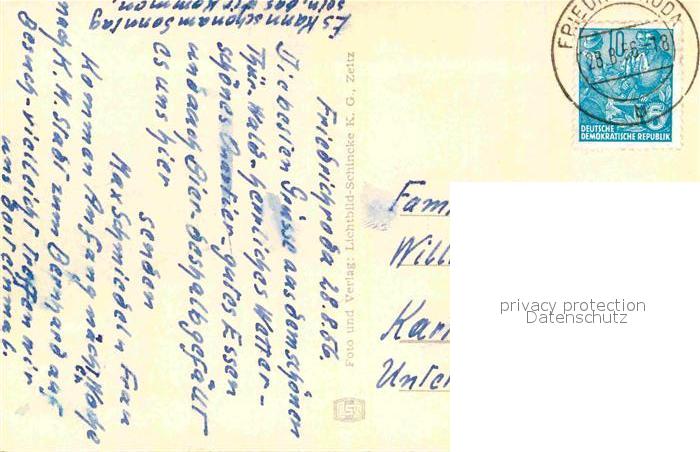 Friedrichroda 28.8.56.
Die besten Grüsse aus dem schönen
Thür. Wald - herrliches Wetter -
schönes Quartier - gutes Essen
und auch Bier - deshalb gefällt
es uns hier
senden
Max Schmiedel u. Frau
Kommen Anfang nächt. Woche
nach K. M. Stadt zum Bernhard auf
Besuch - vielleicht treffen wir
uns dort einmal.
Es kann schon am Sonntag
sein, das wir kommen.
Foto und Verlag: Lichtbild-Schincke K. G., Zeitz
FRIED RODA
28.8.56-18
b
10
5
DEUTSCHE
DEMOKRATISCHE REPUBLIK
Fam
Will
Karl
Unte
privacy protection
Datenschutz